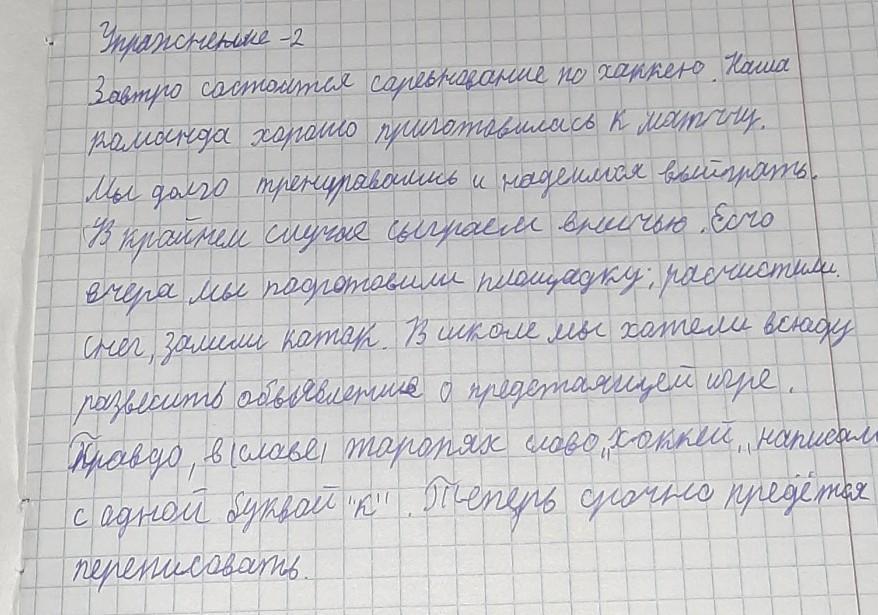 Упражнение -2
Завтро состоится соревнование по хаккею. Наша
команда хорошо приготовилась к матчу.
Мы долго тренировались и надеимся выйграть.
В крайнем случае сыграем вничью. Есчо
вчера мы подготовили площадку; расчистили
снег, залили каток. В школе мы хатели всюду
развесить объявление о предстаящей игре.
Правдо, в (славе) таропях слово „хоккей„ написали
с адной буквой "к". Теперь срочно предётся
переписовать.